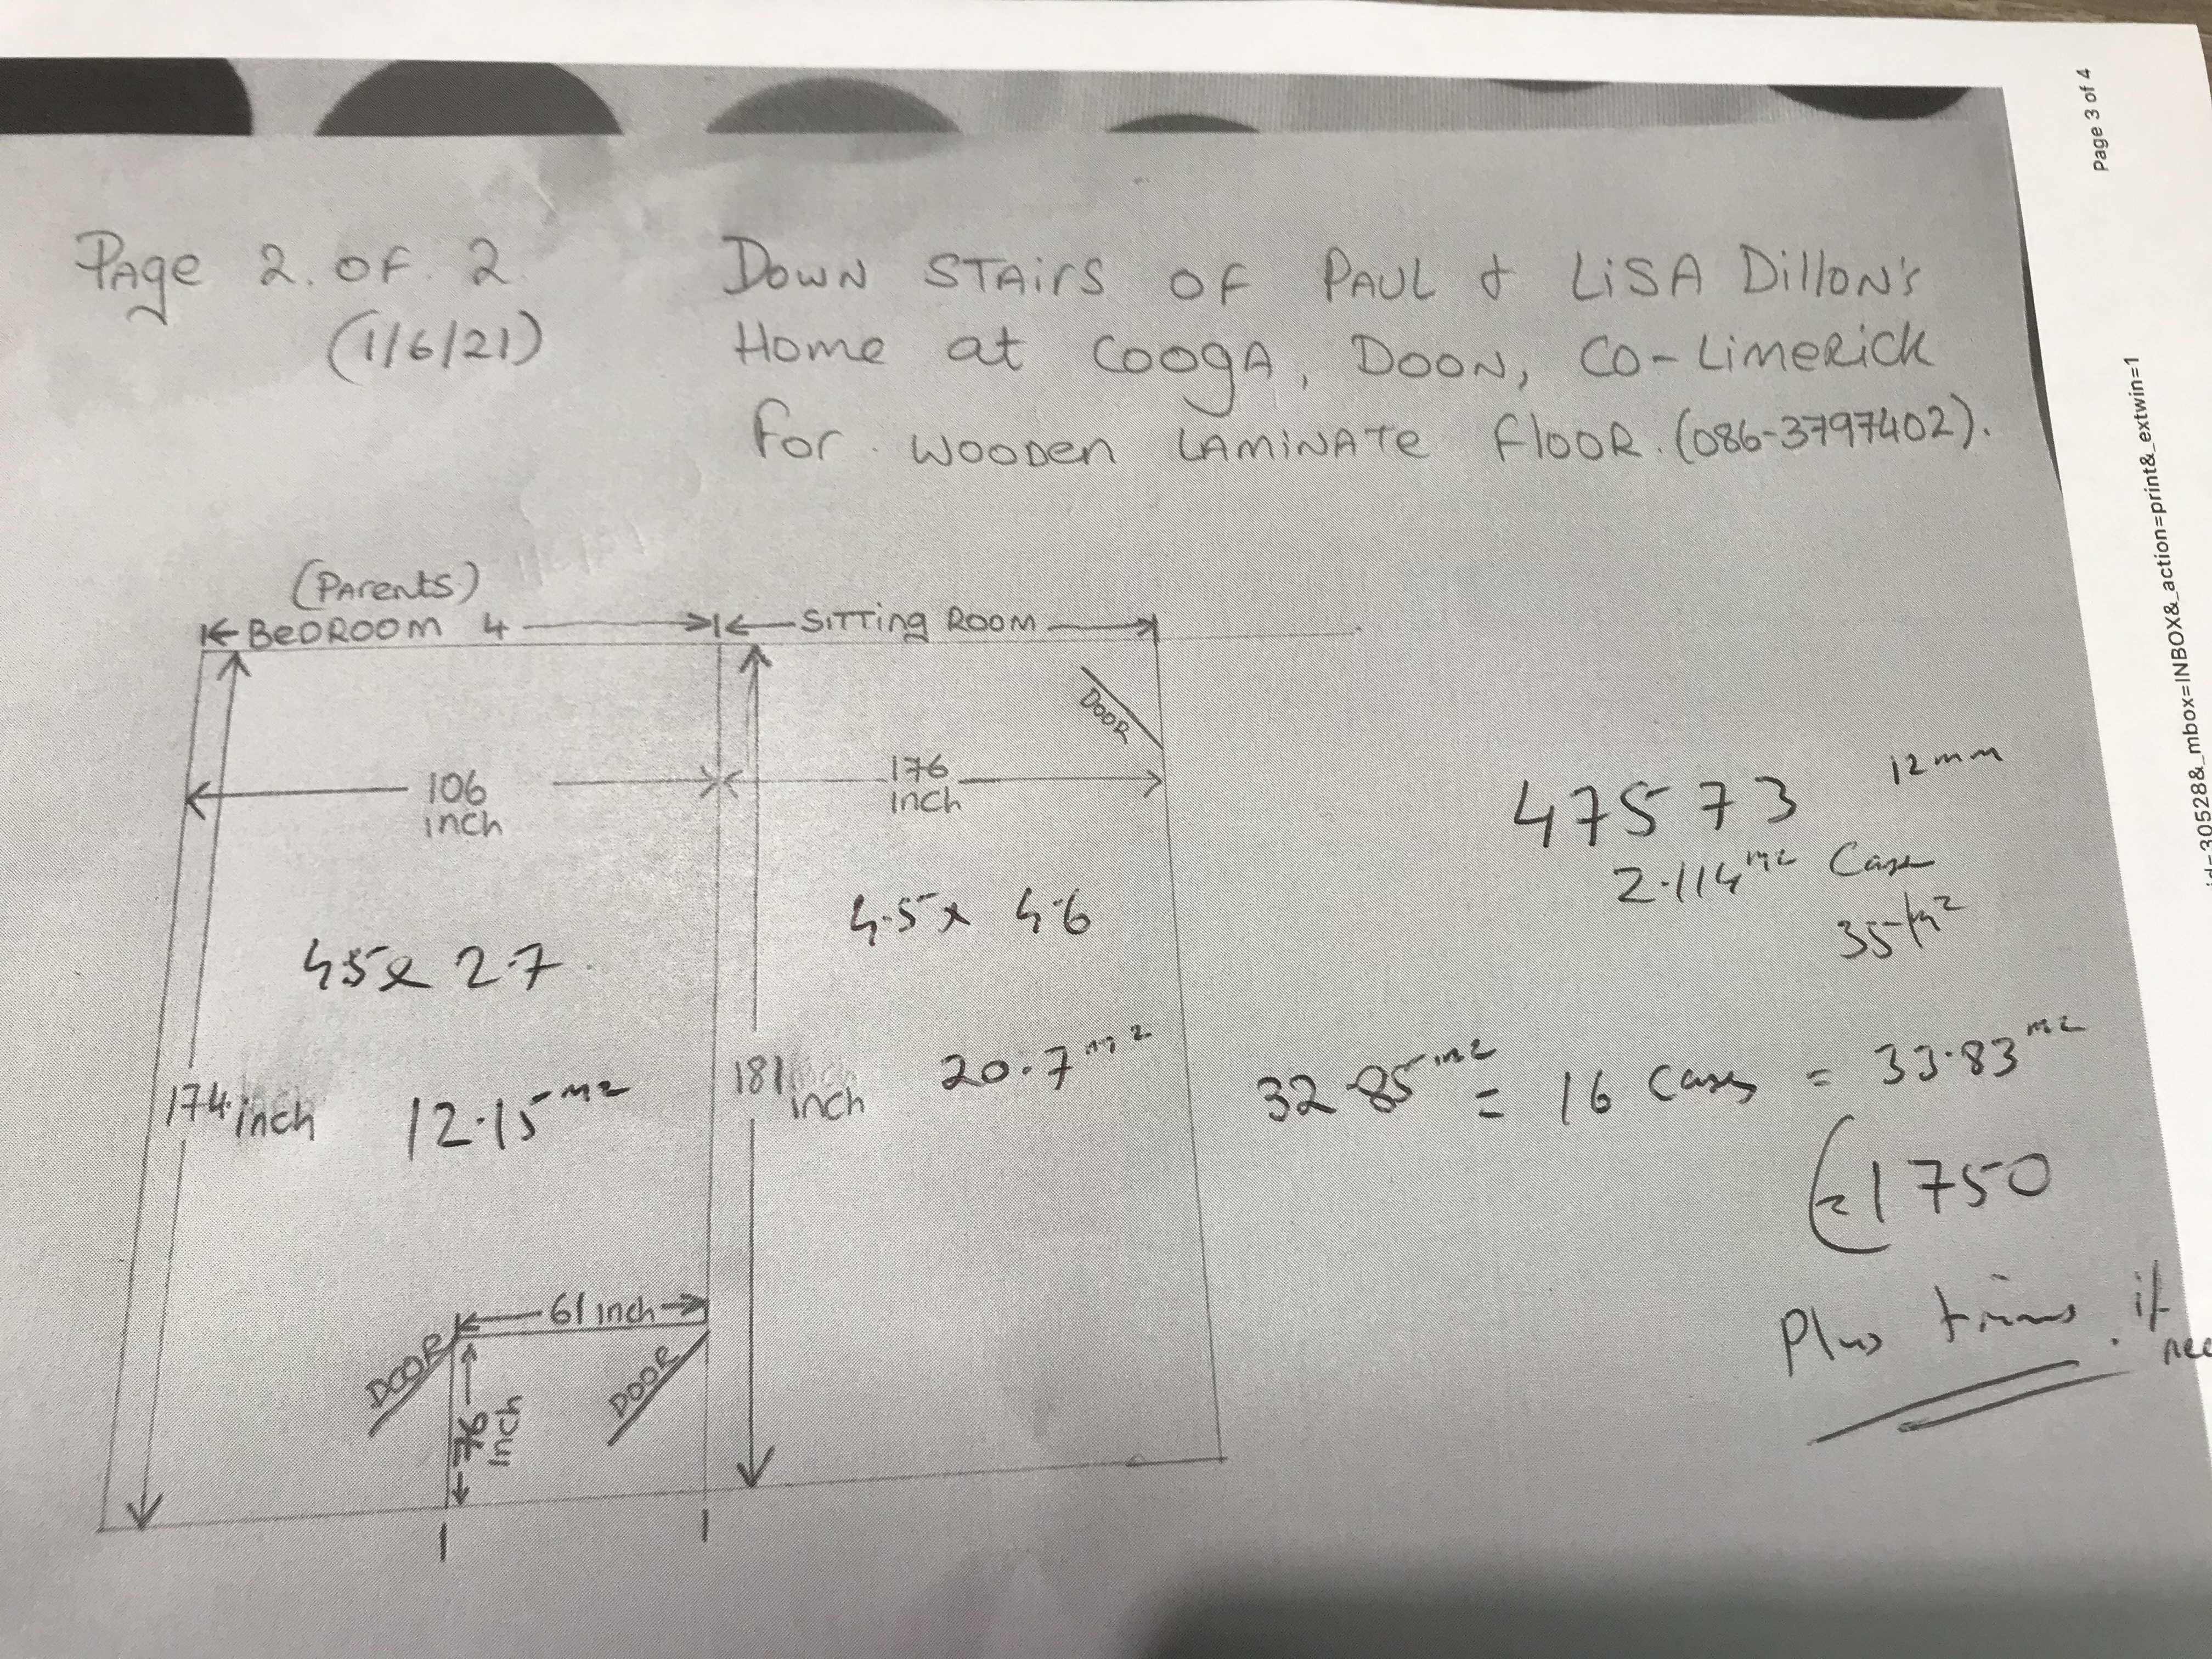 Page 3 of 4
id=30528&_mbox=INBOX&_action=print&_extwin=1
Page 2. of. 2.
(1/6/21)
Down Stairs of Paul & Lisa Dillon's
Home at Cooga, Doon, Co-Limerick
for. wooden Laminate Floor. (086-3797402).
(Parents)
Bedroom 4
Sitting Room
Door
106
inch
176
inch
47573 12mm
2.114m2 Case
35/m2
4.5 x 4.6
45x 2.7
174 inch
12.15m2
181 inch
inch
20.7m2
32.85m2 = 16 Cases = 33.83m2
€1750
Plus trims. if
61 inch
Door
Door
76
inch